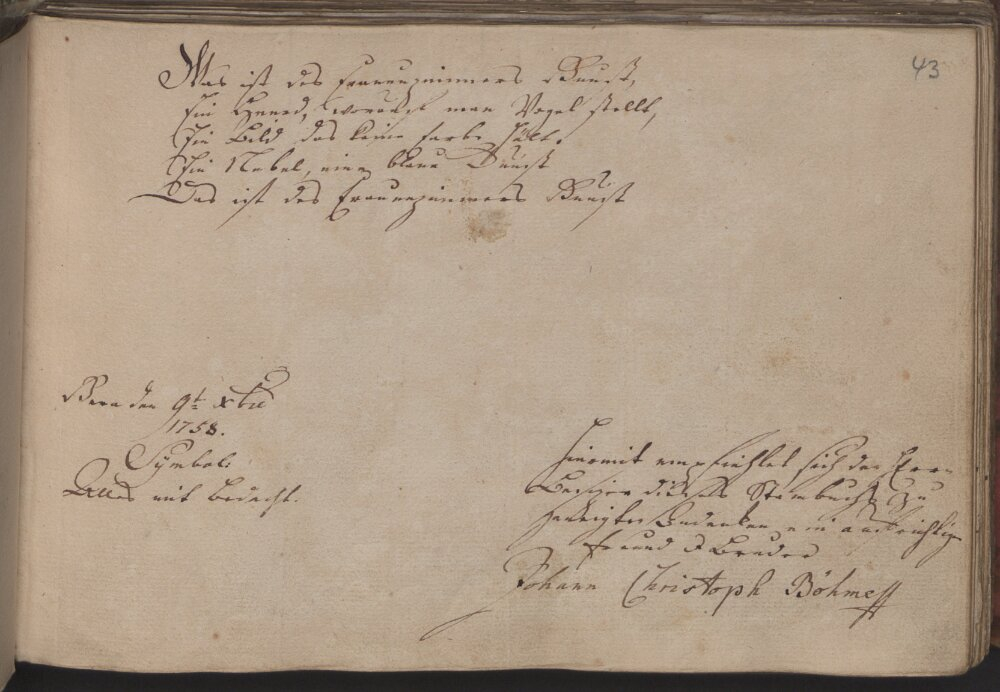 43
Was ist des Frauenzimmers Kunst,
Ein Heerd, worauf man Vogel stellt,
Ein Bild das keine farbe hält.
Ein Nebel, eine blaue Dunst
Das ist des Frauenzimmers Kunst
Bern den 9t Xbr
1758.
Symbol.
Alles mit bedacht.
Hiermit empfiehlet sich dem Herrn
Besizer dieses Stambuchs zu
geneigten Andenken ein aufrichtiger
freund & Bruder
Johann Christoph Böhme